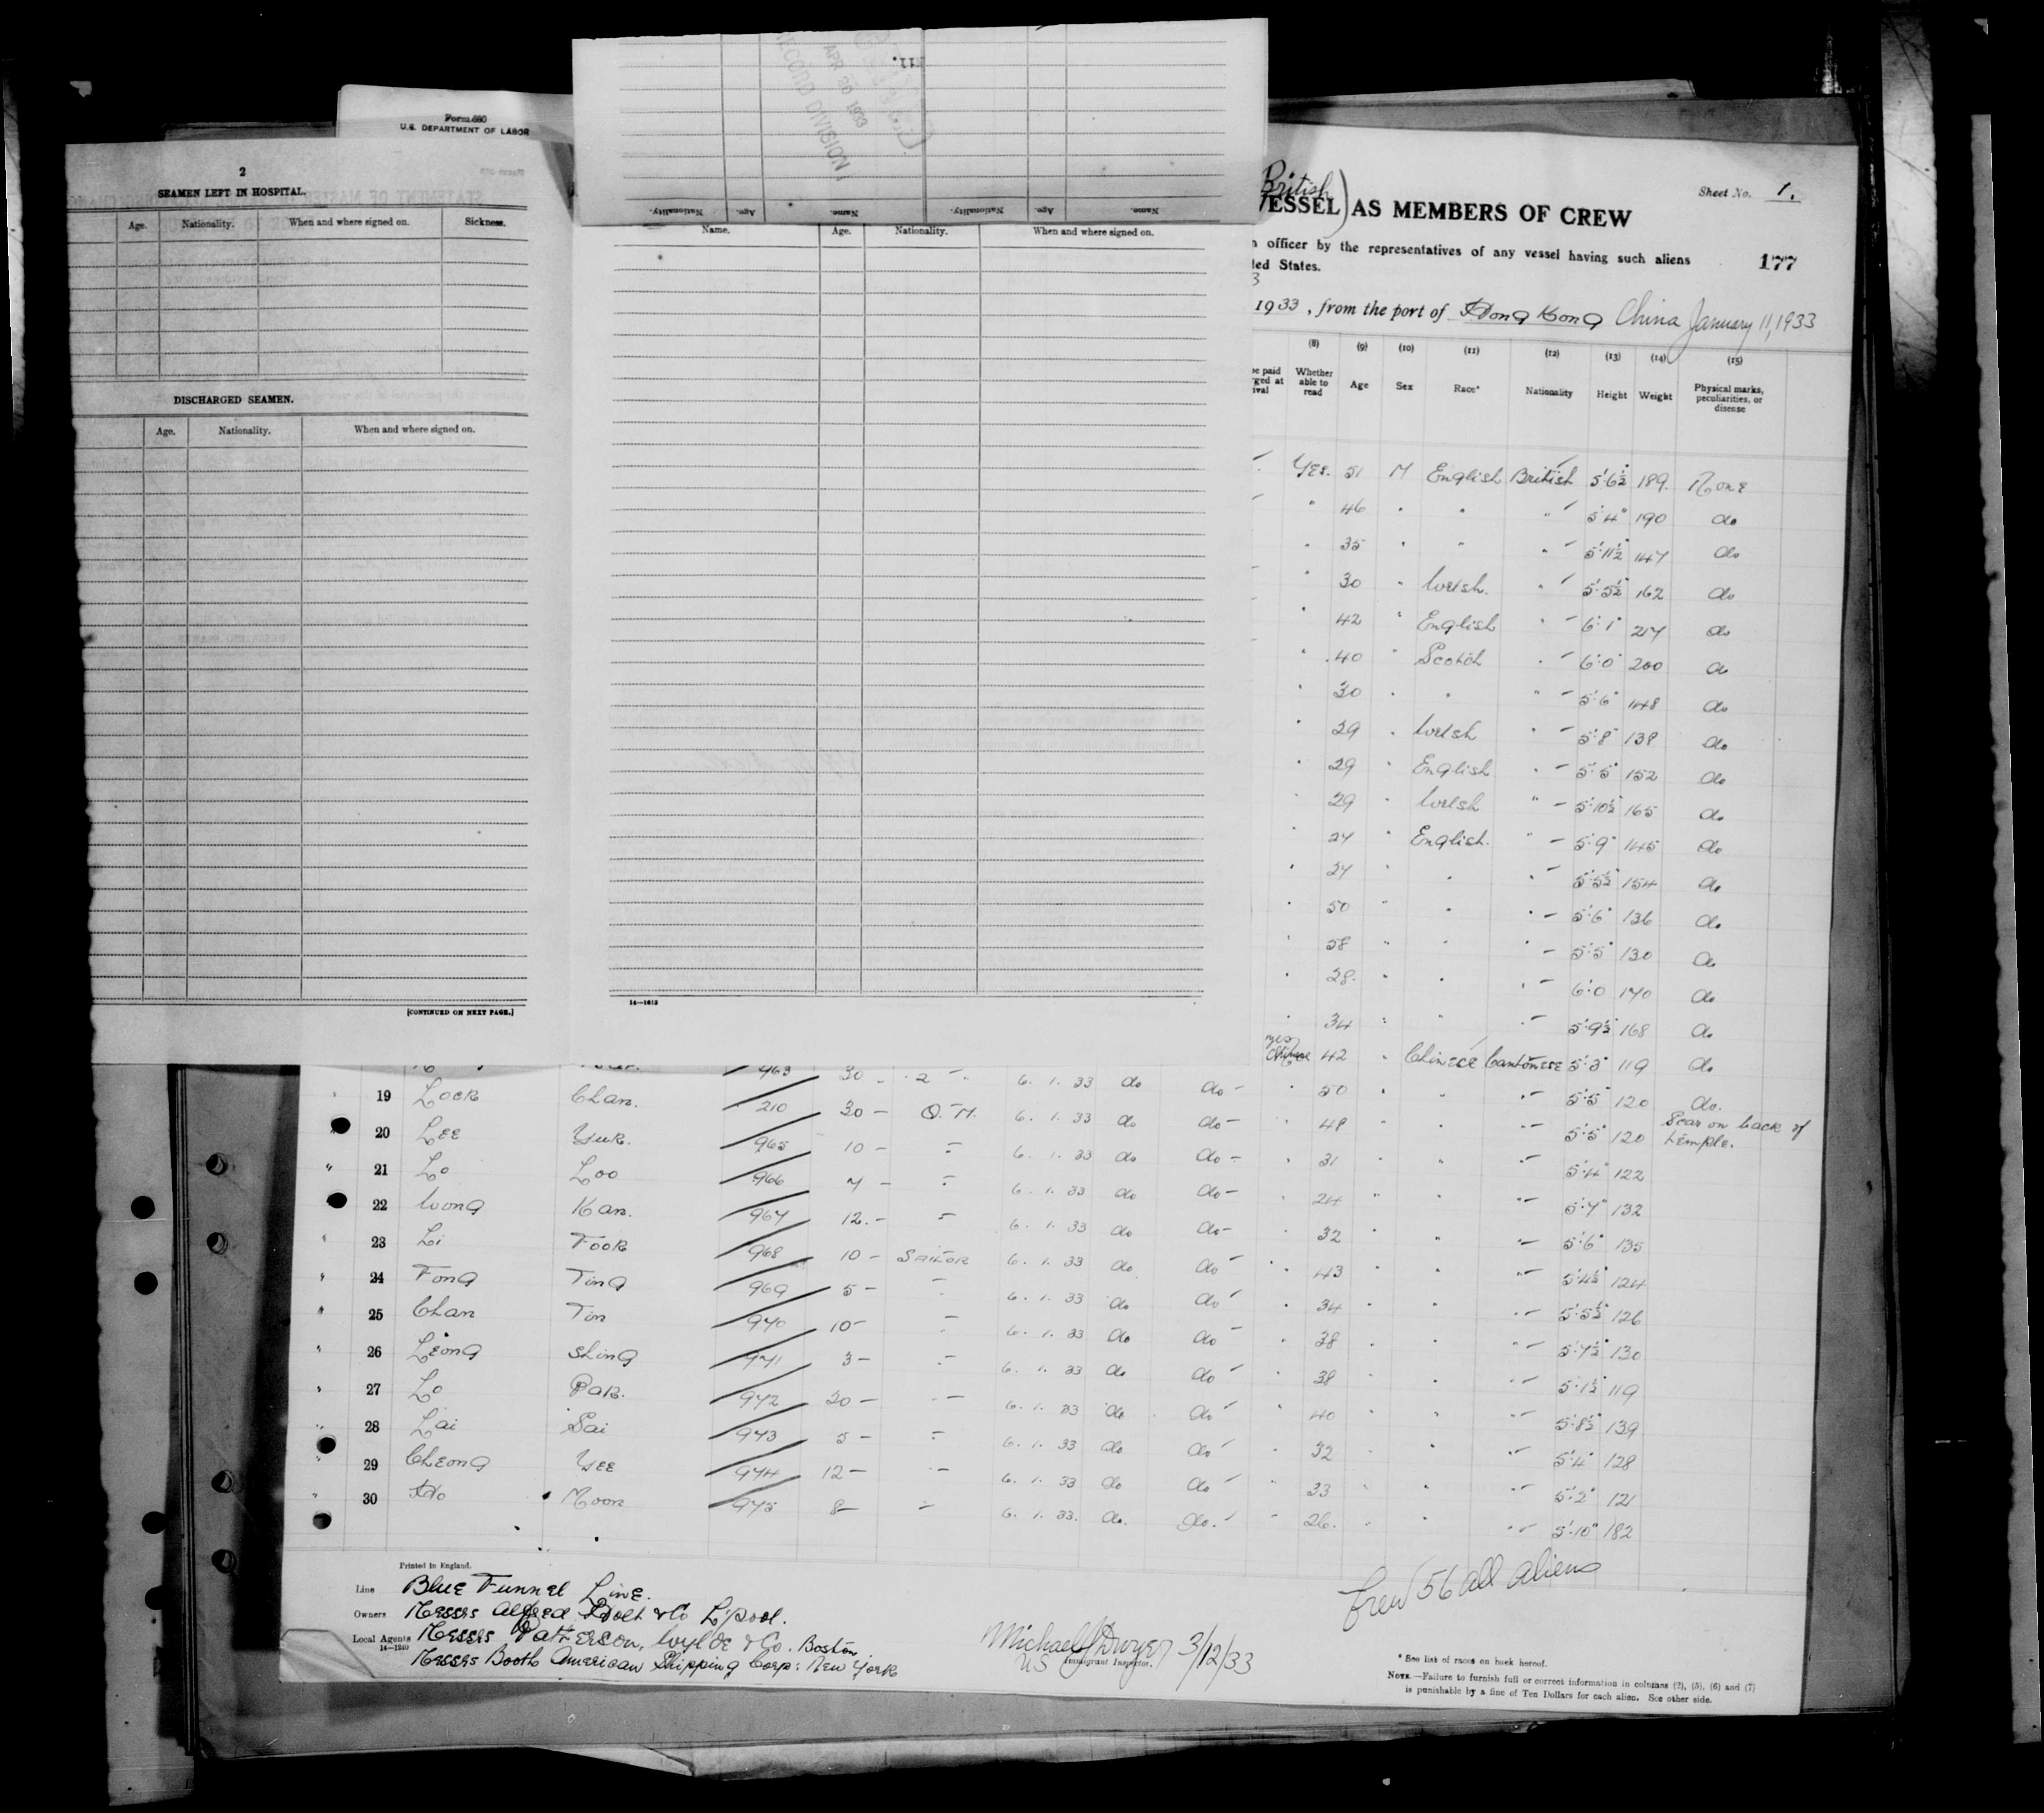 Form 680
U.S. DEPARTMENT OF LABOR
2
SEAMEN LEFT IN HOSPITAL.
Age. Nationality. When and where signed on. Sickness.
DISCHARGED SEAMEN.
Age. Nationality. When and where signed on.
[CONTINUED ON NEXT PAGE.]
RECORD DIVISION
APR 20 1933
Name. Age. Nationality. Name. Age. Nationality.
Name. Age. Nationality. When and where signed on.
14—1613
British
VESSEL) AS MEMBERS OF CREW
Sheet No. 1.
officer by the representatives of any vessel having such aliens
ted States.
177
3
1933, from the port of Hong Kong China January 11, 1933
(8) (9) (10) (11) (12) (13) (14) (15)
Whether able to read Age Sex Race* Nationality Height Weight Physical marks, peculiarities, or disease
Yes. 51 M English British 5'6½" 189 None
" 46 " " " 5'4" 190 do
" 35 " " " 5'11½" 147 do
" 30 " Welsh. " 5'5½" 162 do
" 42 " English " 6'1" 217 do
" 40 " Scotch " 6'0" 200 do
" 30 " " " 5'6" 148 do
" 29 " Welsh " 5'8" 138 do
" 29 " English " 5'5" 152 do
" 29 " Welsh " 5'10½" 165 do
" 27 " English. " 5'9" 145 do
" 27 " " " 5'5½" 154 do
" 50 " " " 5'6" 136 do
" 58 " " " 5'5" 130 do
" 28 " " " 6'0 170 do
" 34 " " " 5'9½" 168 do
yes 42 " Chinese Cantonese 5'3" 119 do
963 30 - 2 6. 1. 33 do do - " 50 " " " 5'5" 120 do.
19 Lock Chan. 210 30 - Q. M. 6. 1. 33 do do - " 48 " " " 5'5" 120 Scar on back of temple.
20 Lee Yuk. 965 10 - " 6. 1. 33 do do - " 31 " " " 5'4" 122
21 Lo Loo 966 7 - " 6. 1. 33 do do - " 24 " " " 5'7" 132
22 Wong Kan. 967 12. - " 6. 1. 33 do do - " 32 " " " 5'6" 135
23 Li Fook 968 10 - Sailor 6. 1. 33 do do " 43 " " " 5'4½" 124
24 Fong Ting 969 5 - " 6. 1. 33 do do " 34 " " " 5'5½" 126
25 Chan Tin 970 10 - " 6. 1. 33 do do " 38 " " " 5'7½" 130
26 Leong Shing 971 3 - " 6. 1. 33 do do " 38 " " " 5'1½" 119
27 Lo Pak. 972 20 - " 6. 1. 33 do do " 40 " " " 5'8½" 139
28 Lai Sai 973 5 - " 6. 1. 33 do do " 32 " " " 5'4" 128
29 Cheong Yee 974 12 - " 6. 1. 33 do do " 23 " " " 5'2" 121
30 Ho Moon 975 8 - " 6. 1. 33. do. do. " 26. " " " 5'10" 182
Crew 56 all aliens
Printed in England.
Line Blue Funnel Line.
Owners Messrs Alfred Holt & Co L'pool.
Local Agents Messrs Patterson, Wylde & Co. Boston
14—1240
Messrs Booth American Shipping Corp: New York
Michael J Dwyer 3/12/33
US Immigrant Inspector.
* See list of races on back hereof.
NOTE.—Failure to furnish full or correct information in columns (2), (5), (6) and (7)
is punishable by a fine of Ten Dollars for each alien. See other side.